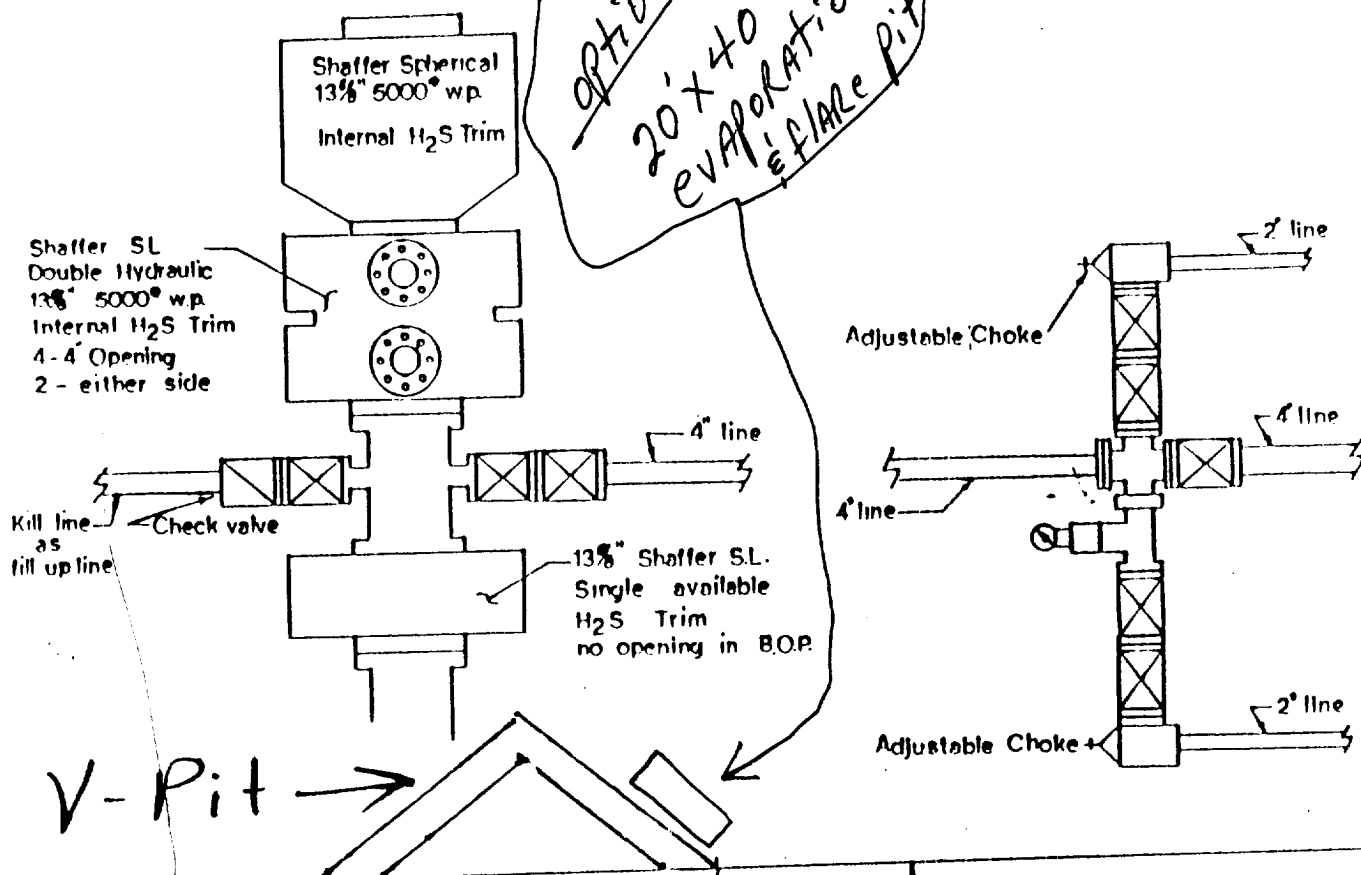 Shaffer Spherical
13⅝" 5000# w.p.
Internal H₂S Trim
20' x 40
evaporatio
& flare pit
Shaffer SL
Double Hydraulic
13⅝" 5000# w.p.
Internal H₂S Trim
4-4" Opening
2 - either side
4" line
Kill line
as
fill up line
Check valve
13⅝" Shaffer S.L.
Single available
H₂S Trim
no opening in B.O.P.
2" line
Adjustable Choke
4" line
4" line
Adjustable Choke
2" line
V-Pit